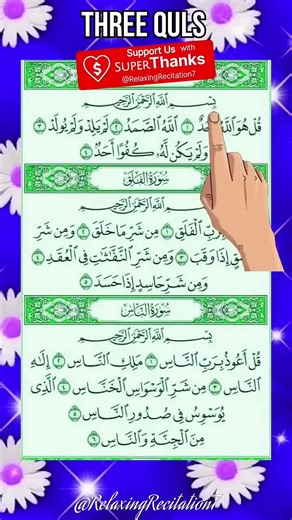 THREE QULS
Support Us with
SUPER Thanks
@RelaxingRecitation7
بِسْمِ اللَّهِ الرَّحْمَٰنِ الرَّحِيمِ
قُلْ هُوَ اللَّهُ أَحَدٌ ١ اللَّهُ الصَّمَدُ ٢ لَمْ يَلِدْ وَلَمْ يُولَدْ ٣
وَلَمْ يَكُن لَّهُ كُفُوًا أَحَدٌ ٤
سُورَةُ الفَلَقِ
بِسْمِ اللَّهِ الرَّحْمَٰنِ الرَّحِيمِ
بِرَبِّ الْفَلَقِ ١ مِن شَرِّ مَا خَلَقَ ٢ وَمِن شَرِّ
إِذَا وَقَبَ ٣ وَمِن شَرِّ النَّفَّاثَاتِ فِي الْعُقَدِ ٤
وَمِن شَرِّ حَاسِدٍ إِذَا حَسَدَ ٥
سُورَةُ النَّاسِ
بِسْمِ اللَّهِ الرَّحْمَٰنِ الرَّحِيمِ
قُلْ أَعُوذُ بِرَبِّ النَّاسِ ١ مَلِكِ النَّاسِ ٢ إِلَٰهِ
النَّاسِ ٣ مِن شَرِّ الْوَسْوَاسِ الْخَنَّاسِ ٤ الَّذِي
يُوَسْوِسُ فِي صُدُورِ النَّاسِ ٥
مِنَ الْجِنَّةِ وَالنَّاسِ ٦
@RelaxingRecitation7